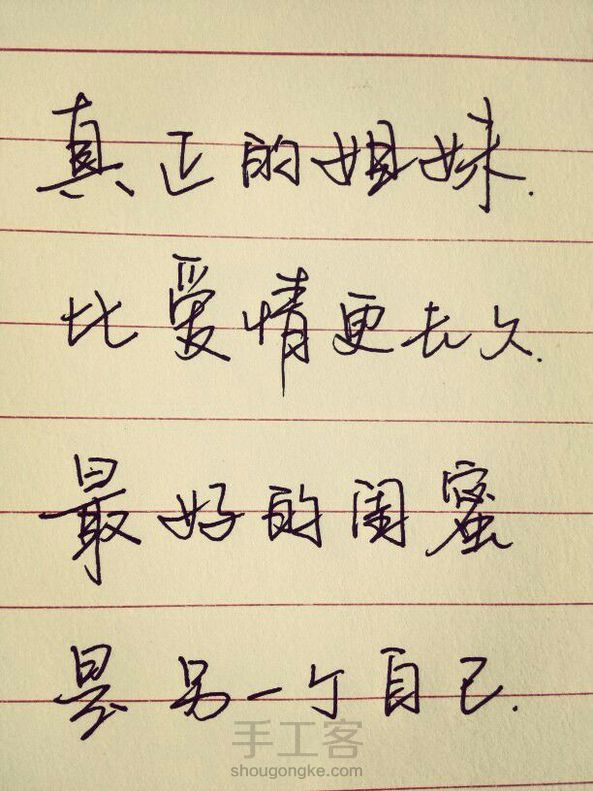 真正的姐妹.
比爱情更长久.
最好的闺蜜
是另一个自己.
手工客
shougongke.com